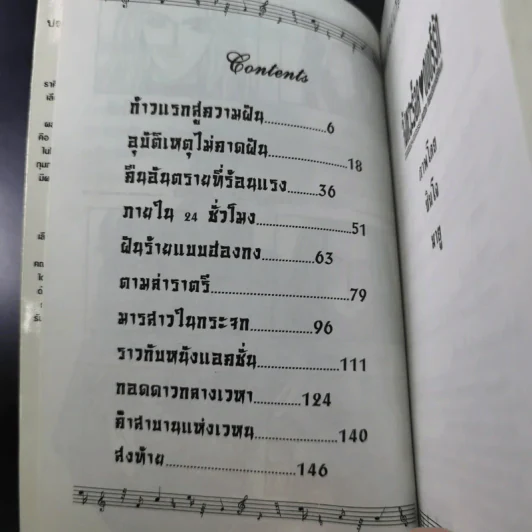 Contents
ก้าวแรกสู่ความฝัน..........6
อุบัติเหตุไม่คาดฝัน..........18
คืนอันตรายที่ร้อนแรง..........36
ภายใน 24 ชั่วโมง..........51
ฝันร้ายแบบฮ่องกง..........63
ตามล่าราตรี..........79
มารสาวในกระจก..........96
ราวกับหนังแอคชั่น..........111
กอดดาวกลางเวหา..........124
คำสาบานแห่งเวหน..........140
ส่งท้าย..........146